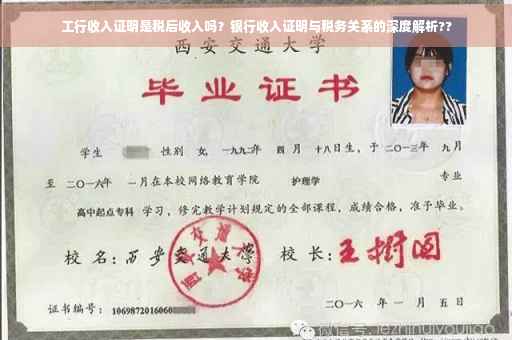 工行收入证明是税后收入吗？银行收入证明与税务关系的深度解析??
西安交通大学
毕业证书
学生 性别 女, 一九九二年 四 月 十八日生, 于 二○一三年 九 月
至 二○一六年 一 月在本校网络教育学院 护理学 专业
高中起点专科 学习, 修完教学计划规定的全部课程, 成绩合格, 准予毕业。
校 名: 西安交通大学 校 长: 王树国
西安交通大学
证书编号: 1069872016060
二○一六 年 一 月 五 日
微信号: jiezhihuiyoujiao